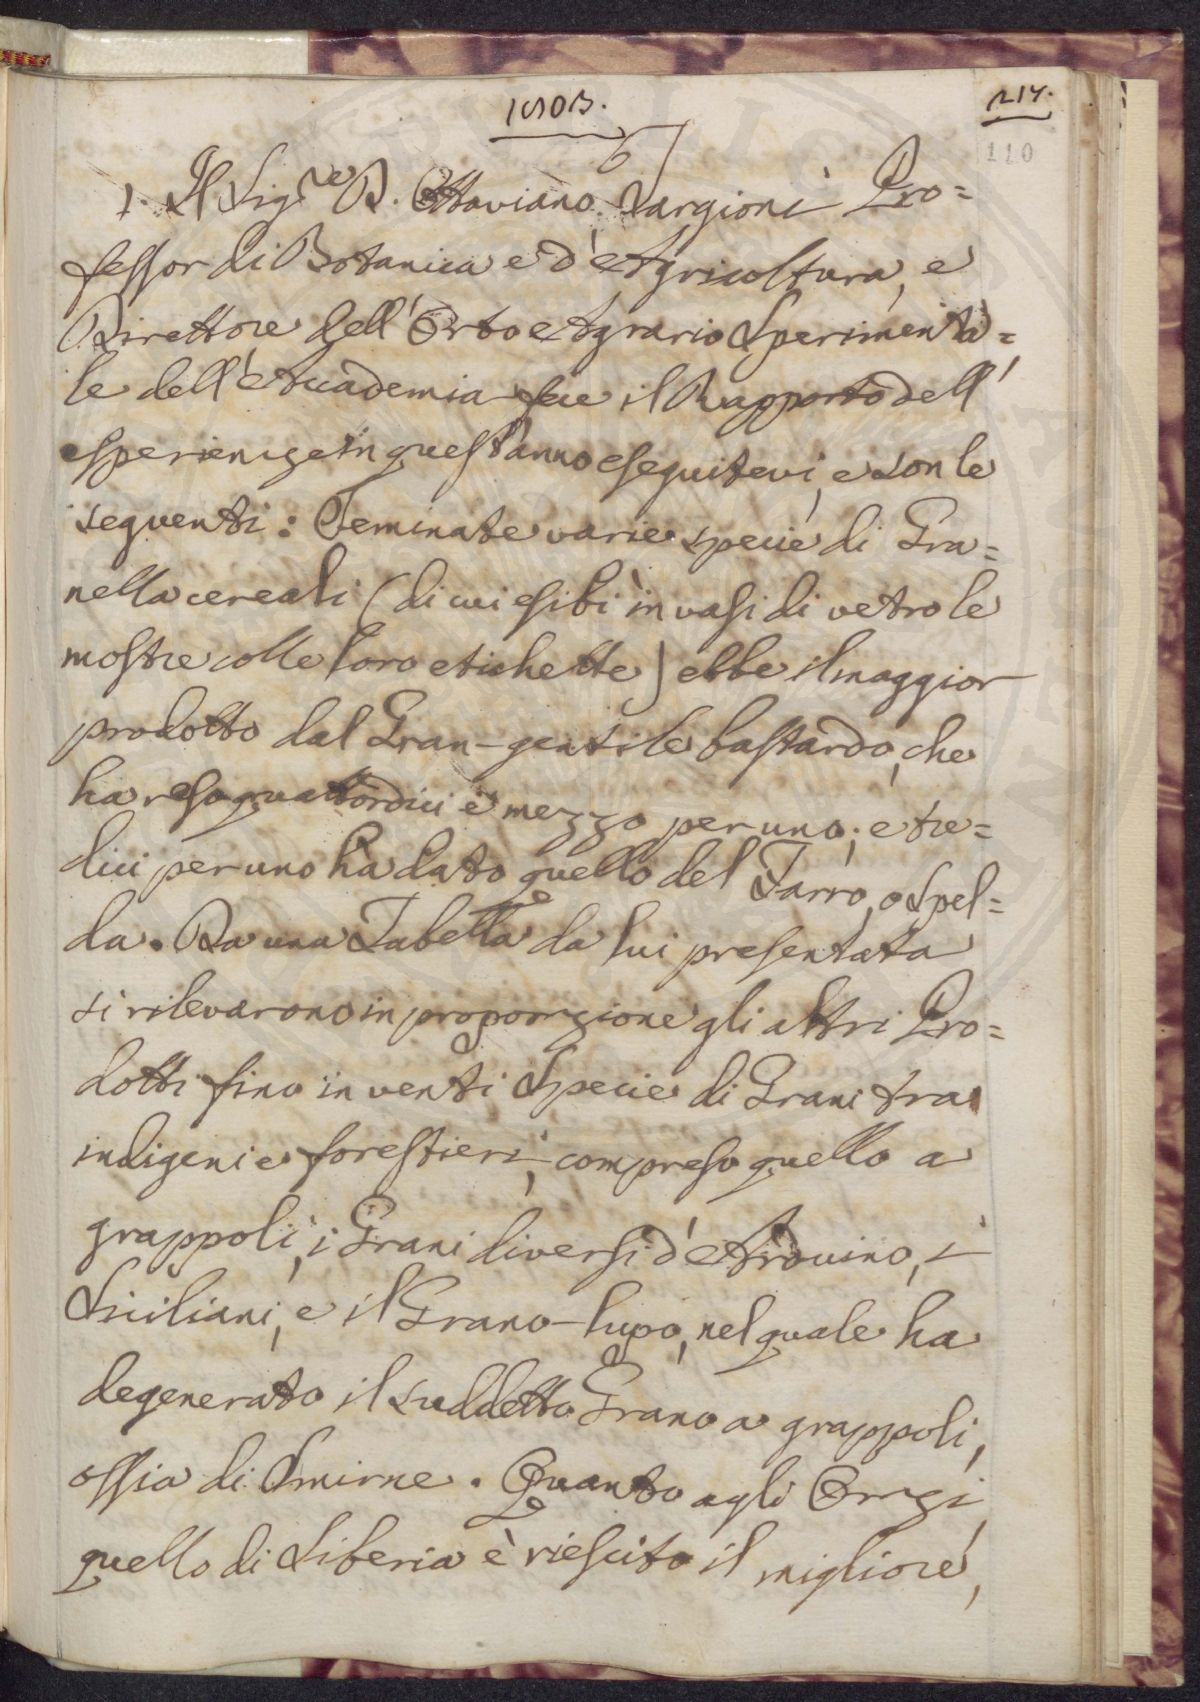 1803.
214.
110
1. Il Sig.re D. Ottaviano Targioni Pro=
fessor di Botanica e d'Agricoltura, e
Direttore dell'Orto Agrario Sperimenta=
le dell'Accademia fece il Rapporto dell'
esperienze in quest'anno eseguitevi, e son le
seguenti: Seminate varie specie di Gra=
nella cereali (di cui esibì in vasi di vetro le
mostre colle loro etichette) ebbe il maggior
prodotto dal Gran-gentile bastardo, che
ha reso quattordici e mezzo per uno; e tre=
dici per uno ha dato quello del Farro, o Spel=
da. Da una Tabella da lui presentata
si rilevarono in proporzione gli altri Pro=
dotti fino in venti Specie di Grani tra
indigeni e forestieri, compreso quello a
grappoli, i Grani diversi d'Arduino, i
Siciliani, e il Grano-lupo, nel quale ha
degenerato il suddetto Grano a grappoli,
ossia di Smirne. Quanto agli Orzi
quello di Siberia è riescito il migliore,